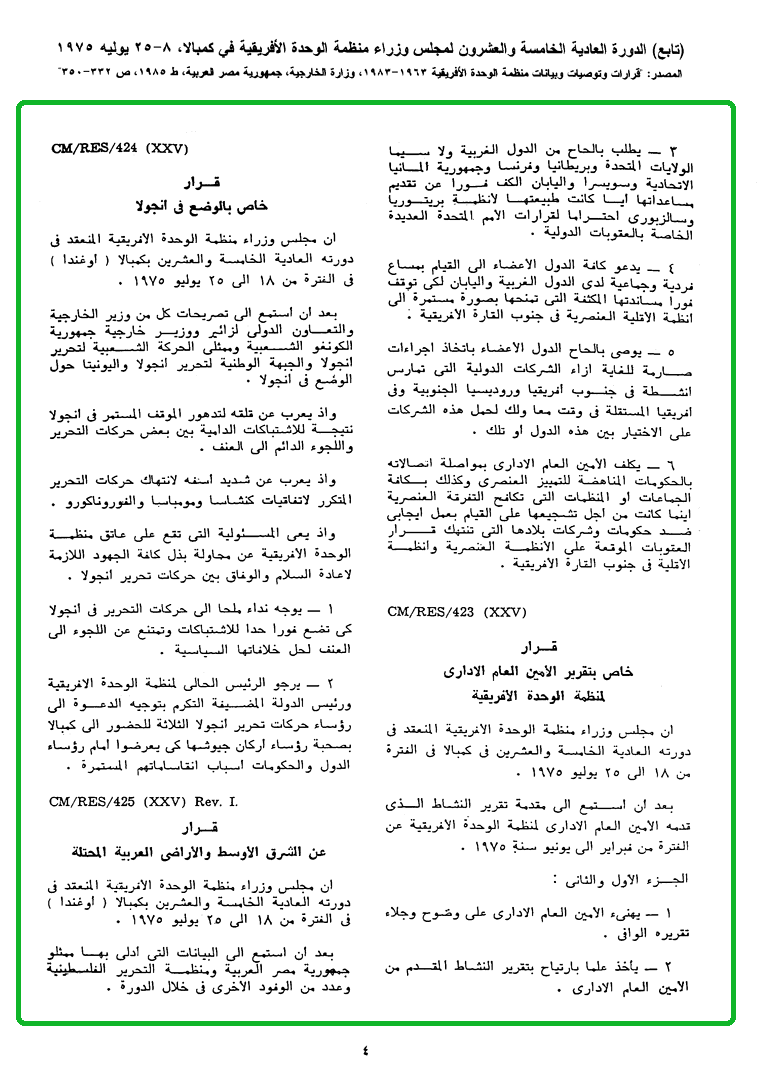 (تابع) الدورة العادية الخامسة والعشرون لمجلس وزراء منظمة الوحدة الأفريقية في كمبالا، ٨-٢٥ يوليه ١٩٧٥
المصدر: "قرارات وتوصيات وبيانات منظمة الوحدة الأفريقية ١٩٦٣-١٩٨٣، وزارة الخارجية، جمهورية مصر العربية، ط ١٩٨٥، ص ٣٣٢-٣٥٠"
٣ — يطلب بالحاح من الدول الغربية ولا سيما
الولايات المتحدة وبريطانيا وفرنسا وجمهورية المانيا
الاتحادية وسويسرا واليابان الكف فورا عن تقديم
مساعداتها أيا كانت طبيعتها لأنظمة بريتوريا
وسالزبورى احتراما لقرارات الأمم المتحدة العديدة
الخاصة بالعقوبات الدولية .
٤ — يدعو كافة الدول الأعضاء الى القيام بمساع
فردية وجماعية لدى الدول الغربية واليابان لكى توقف
فورا مساندتها المكثفة التى تمنحها بصورة مستمرة الى
أنظمة الأقلية العنصرية فى جنوب القارة الأفريقية .
٥ — يوصى بالحاح الدول الأعضاء باتخاذ اجراءات
صارمة للغاية ازاء الشركات الدولية التى تمارس
أنشطة فى جنوب أفريقيا وروديسيا الجنوبية وفى
افريقيا المستقلة فى وقت معا ولك لحمل هذه الشركات
على الاختيار بين هذه الدول أو تلك .
٦ — يكلف الأمين العام الادارى بمواصلة اتصالاته
بالحكومات المناهضة للتمييز العنصرى وكذلك بكافة
الجماعات أو المنظمات التى تكافح التفرقة العنصرية
أينما كانت من أجل تشجيعها على القيام بعمل ايجابى
ضد حكومات وشركات بلادها التى تنتهك قرار
العقوبات الموقعة على الأنظمة العنصرية وأنظمة
الأقلية فى جنوب القارة الأفريقية .
CM/RES/423 (XXV)
قرار
خاص بتقرير الأمين العام الادارى
لمنظمة الوحدة الأفريقية
ان مجلس وزراء منظمة الوحدة الأفريقية المنعقد فى
دورته العادية الخامسة والعشرين فى كمبالا فى الفترة
من ١٨ الى ٢٥ يوليو ١٩٧٥ .
بعد أن استمع الى مقدمة تقرير النشاط الذى
قدمه الأمين العام الادارى لمنظمة الوحدة الأفريقية عن
الفترة من فبراير الى يونيو سنة ١٩٧٥ .
الجزء الأول والثانى :
١ — يهنىء الأمين العام الادارى على وضوح وجلاء
تقريره الوافى .
٢ — يأخذ علما بارتياح بتقرير النشاط المقدم من
الأمين العام الادارى .
CM/RES/424 (XXV)
قرار
خاص بالوضع فى أنجولا
ان مجلس وزراء منظمة الوحدة الأفريقية المنعقد فى
دورته العادية الخامسة والعشرين بكمبالا ( أوغندا )
فى الفترة من ١٨ الى ٢٥ يوليو ١٩٧٥ .
بعد أن استمع الى تصريحات كل من وزير الخارجية
والتعاون الدولى لزائير ووزير خارجية جمهورية
الكونغو الشعبية وممثلى الحركة الشعبية لتحرير
أنجولا والجبهة الوطنية لتحرير أنجولا واليونيتا حول
الوضع فى أنجولا .
واذ يعرب عن قلقه لتدهور الموقف المستمر فى أنجولا
نتيجة للاشتباكات الدامية بين بعض حركات التحرير
واللجوء الدائم الى العنف .
واذ يعرب عن شديد أسفه لانتهاك حركات التحرير
المتكرر لاتفاقيات كنشاسا ومومباسا والفوروناكورو .
واذ يعى المسئولية التى تقع على عاتق منظمة
الوحدة الأفريقية عن محاولة بذل كافة الجهود اللازمة
لاعادة السلام والوفاق بين حركات تحرير أنجولا .
١ — يوجه نداء ملحا الى حركات التحرير فى أنجولا
كى تضع فورا حدا للاشتباكات وتمتنع عن اللجوء الى
العنف لحل خلافاتها السياسية .
٢ — يرجو الرئيس الحالى لمنظمة الوحدة الأفريقية
ورئيس الدولة المضيفة التكرم بتوجيه الدعوة الى
رؤساء حركات تحرير أنجولا الثلاثة للحضور الى كمبالا
بصحبة رؤساء أركان جيوشها كى يعرضوا أمام رؤساء
الدول والحكومات أسباب انقاساماتهم المستمرة .
CM/RES/425 (XXV) Rev. I.
قرار
عن الشرق الأوسط والأراضى العربية المحتلة
ان مجلس وزراء منظمة الوحدة الأفريقية المنعقد فى
دورته العادية الخامسة والعشرين بكمبالا ( أوغندا )
فى الفترة من ١٨ الى ٢٥ يوليو ١٩٧٥ .
بعد أن استمع الى البيانات التى أدلى بها ممثلو
جمهورية مصر العربية ومنظمة التحرير الفلسطينية
وعدد من الوفود الأخرى فى خلال الدورة .
٤